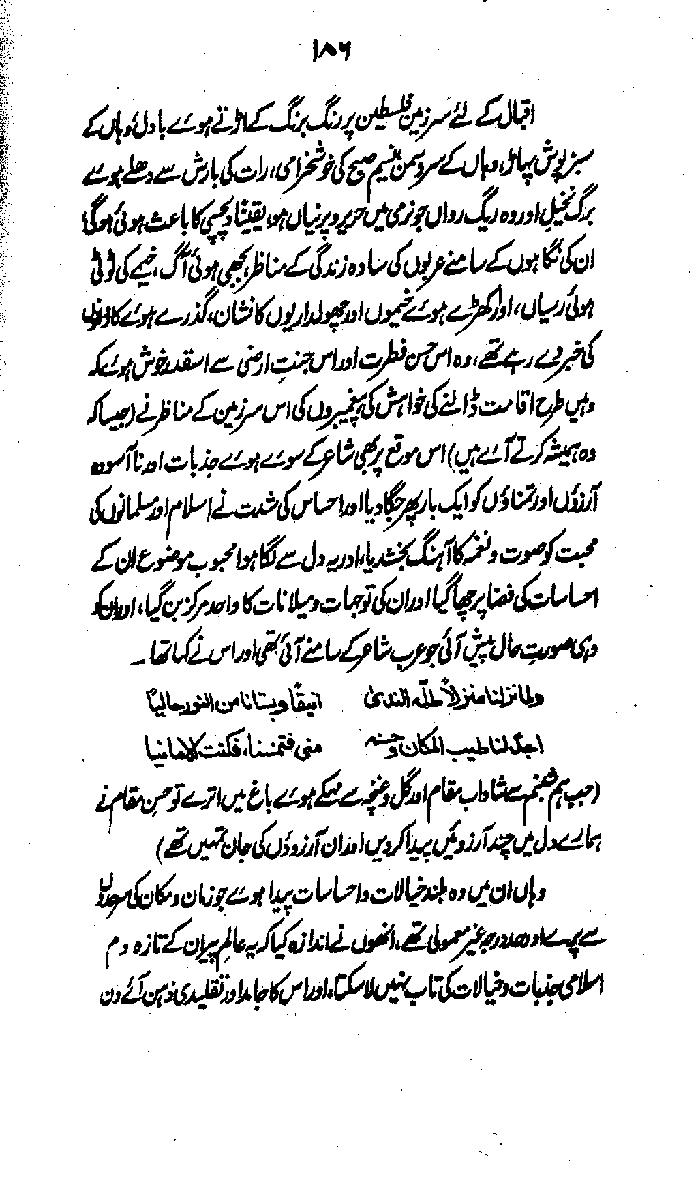 ۱۸۶
اقبال کے لئے سرزمین فلسطین پر رنگ برنگ کے اڑتے ہوئے بادل، وہاں کے
سبز پوش پہاڑ، وہاں کے سرو سمن، نسیم صبح کی خوشخرامی، رات کی بارش سے دھلے ہوئے
برگ نخیل اور وہ ریگ رواں جو نرمی میں حریر و پرنیاں ہو، یقیناً دلچسپی کا باعث ہوئی ہوگی
ان کی نگاہوں کے سامنے عربوں کی سادہ زندگی کے مناظر، بجھی ہوئی آگ، خیمے کی ٹوٹی
ہوئی رسیاں، اور اکھڑے ہوئے خیموں اور چھولداریوں کا نشان، گذرے ہوئے کاروانوں
کی خبر دے رہے تھے، وہ اس حسن فطرت اور اس جنت ارضی سے اسقدر خوش ہوئے کہ
وہیں طرح اقامت ڈالنے کی خواہش کی پیغمبروں کی اس سرزمین کے مناظر نے (جیسا کہ
وہ ہمیشہ کرتے آئے ہیں) اس موقع پر بھی شاعر کے سوئے ہوئے جذبات اور ناآسودہ
آرزوؤں اور تمناؤں کو ایک بار پھر جگا دیا اور احساس کی شدت نے اسلام اور مسلمانوں کی
محبت کو صوت و نغمہ کا آہنگ بخشدیا، اور یہ دل سے لگا ہوا محبوب موضوع ان کے
احساسات کی فضا پر چھا گیا اور ان کی توجہات و میلانات کا واحد مرکز بن گیا، اور ان کو
وہی صورت حال پیش آئی جو عرب شاعر کے سامنے آئی تھی اور اس نے کہا تھا۔
ولما نزلنا منزلاً طلّه الندیٰ انیقًا وبستانا من النور حالیًا
اجدّ لنا طیب المکان وحسنه منی فتمنینا، فکنت الامانیا
(جب ہم شبنم سے شاداب مقام اور گل و غنچہ سے مہکے ہوئے باغ میں اترے تو حسن مقام نے
ہمارے دل میں چند آرزوئیں پیدا کر دیں اور ان آرزوؤں کی جان تمہیں تھے)
وہاں ان میں وہ بلند خیالات و احساسات پیدا ہوئے جو زمان و مکان کی سرحدوں
سے پرے اور حد درجہ غیر معمولی تھے، انھوں نے اندازہ کیا کہ یہ عالم پیر ان کے تازہ دم
اسلامی جذبات و خیالات کی تاب نہیں لا سکتا، اور اس کا جامد اور تقلیدی ذہن آئے دن